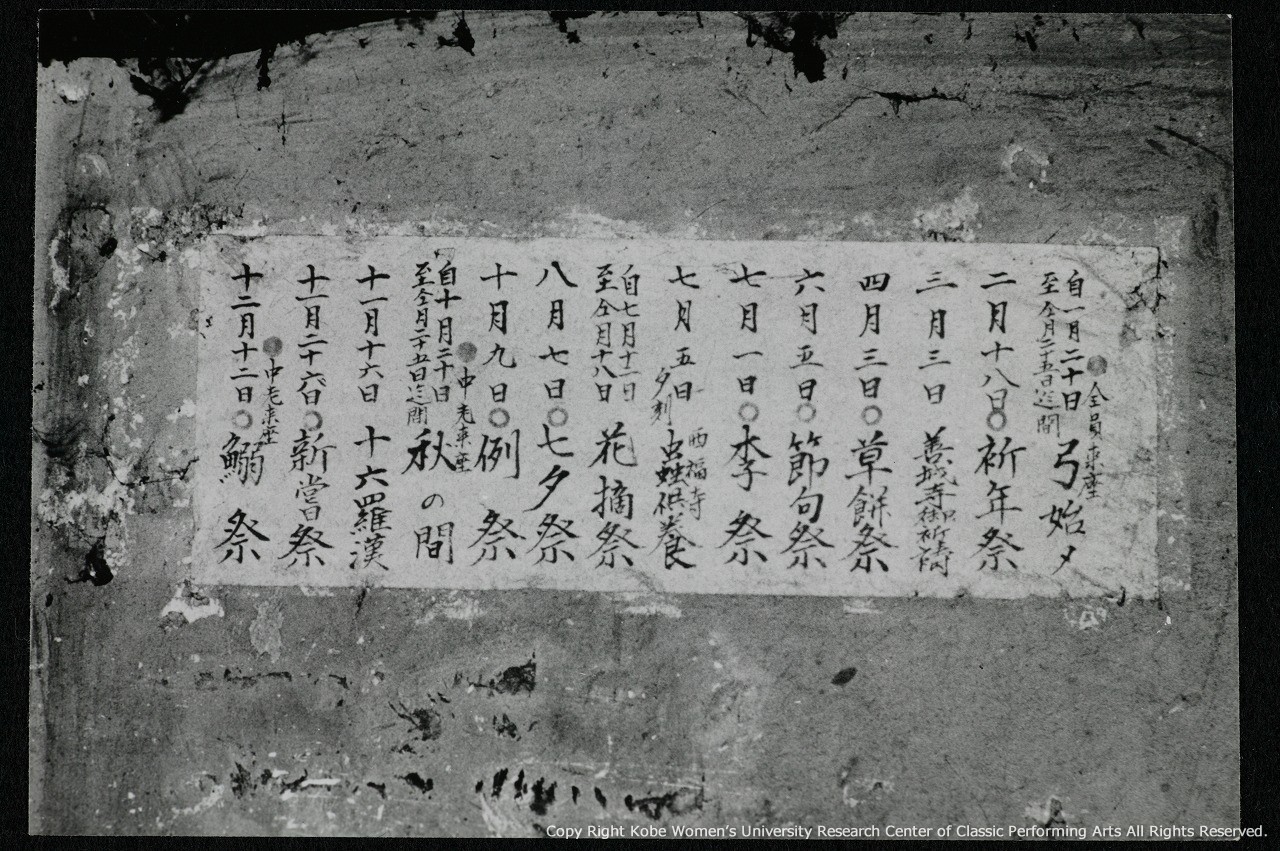 自一月二十日
至仝月二十五日迄間
●全員来座
弓始〆
二月十八日○祈年祭
三月三日 善城寺御祈祷
四月三日○草餅祭
六月五日○節句祭
七月一日○李祭
七月五日
夕刻
西福寺
虫蛙供養
自七月十二日
至仝月十八日
花摘祭
八月七日○七夕祭
十月九日○例祭
●中老来座
自十月二十日
至仝月二十五日迄間
秋の間
十一月十六日 十六羅漢
十一月二十六日○新嘗祭
●中老来座
十二月十二日○鰯祭
Copy Right Kobe Women's University Research Center of Classic Performing Arts All Rights Reserved.